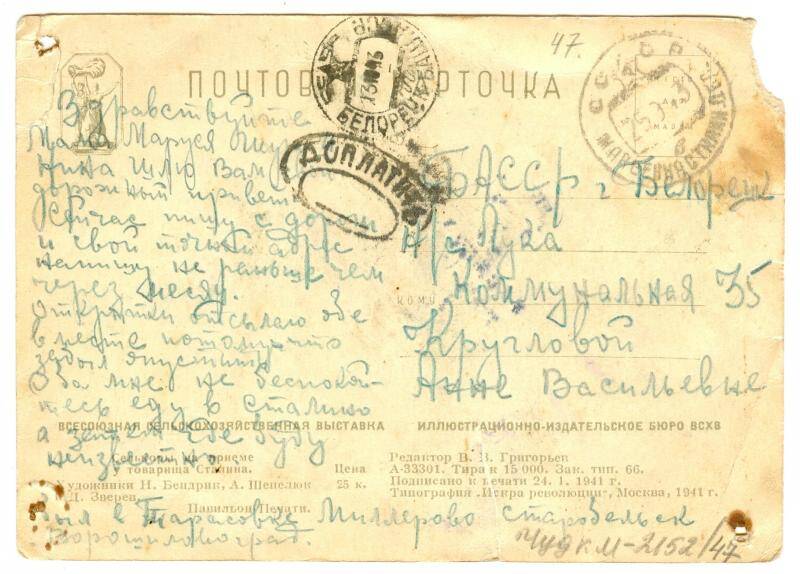 47.
ПОЧТОВ РТОЧКА
БЕЛОРЕЦ
ДОПЛАТИТЬ
СССР
Здравствуйте
Мама Маруся
Нина шлю Вам
дорожный привет
Сейчас пишу с дороги
и свой точный адрес
напишу не раньше чем
через месяц.
Открытки отсылаю обе
вместе потому что
забыл опустить.
За мне не беспокой-
тесь еду в Сталино
а затем где буду
неизвестно
Был в Тарасовке Миллерово Старобельск
Ворошиловоград.
БАССР г Белорецк
Н/с Лука
КОМУ
Коммунальная 35
Кругловой
Анне Васильевне
ВСЕСОЮЗНАЯ СЕЛЬСКОХОЗЯЙСТВЕННАЯ ВЫСТАВКА
ИЛЛЮСТРАЦИОННО-ИЗДАТЕЛЬСКОЕ БЮРО ВСХВ
Селькоры на приеме
у товарища Сталина.
Цена
Художники Н. Бендрик, А. Шепелюк
25 к.
Д. Зверев.
Павильон Печати.
Редактор В. В. Григорьев
А-33301. Тираж 15 000. Зак. тип. 66.
Подписано к печати 24. 1. 1941 г.
Типография „Искра революции", Москва, 1941 г.
ЧУДКМ-2152/47